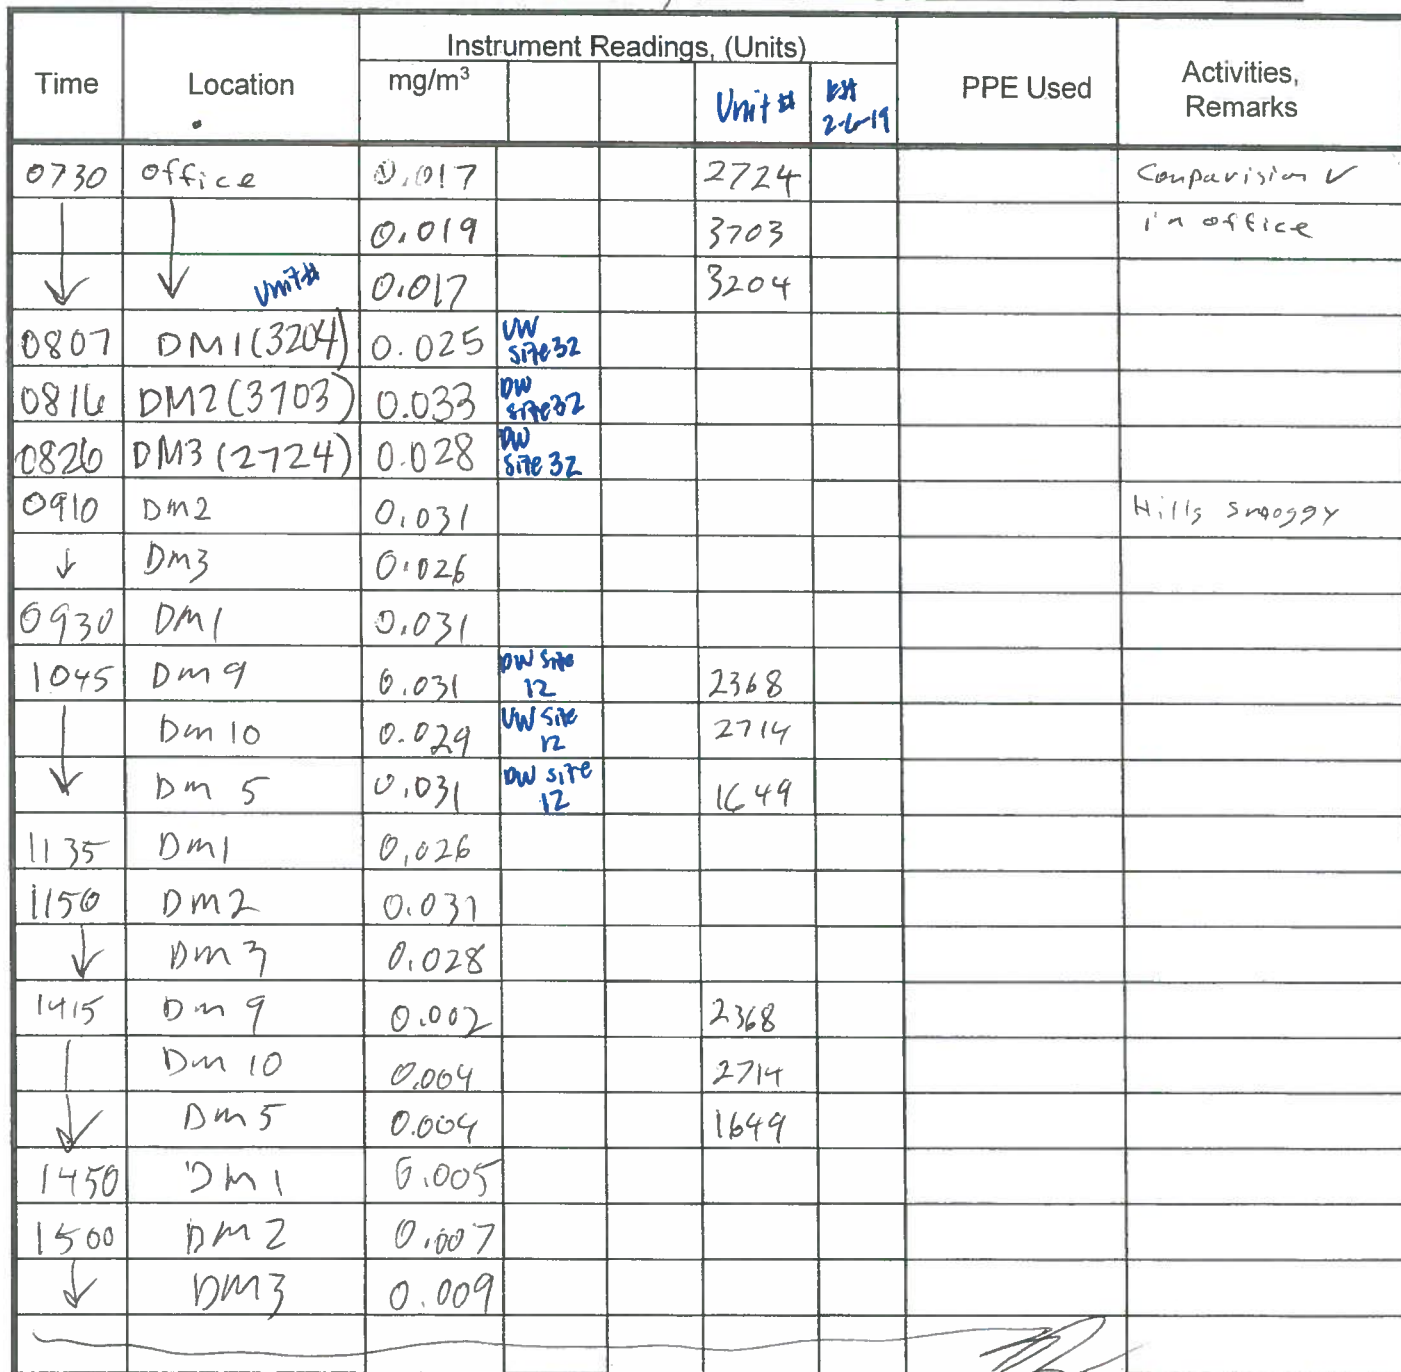 Instrument Readings, (Units)
Time Location mg/m³ Unit # 2-6-19 PPE Used Activities, Remarks
0730 office 0.017 2724 Comparision ✓
↓ ↓ 0.019 3703 in office
Unit# 0.017 3204
0807 DM1(3204) 0.025 UW site 32
0816 DM2(3703) 0.033 DW site 32
0826 DM3(2724) 0.028 DW site 32
0910 Dm2 0.031 Hills smoggy
↓ Dm3 0.026
0930 DM1 0.031
1045 Dm 9 0.031 DW site 12 2368
↓ Dm 10 0.029 UW site 12 2714
Dm 5 0.031 DW site 12 1649
1135 Dm1 0.026
1150 Dm2 0.031
↓ Dm 3 0.028
1415 Dm 9 0.002 2368
↓ Dm 10 0.004 2714
Dm 5 0.004 1649
1450 Dm1 0.005
1500 DM2 0.007
↓ DM3 0.009